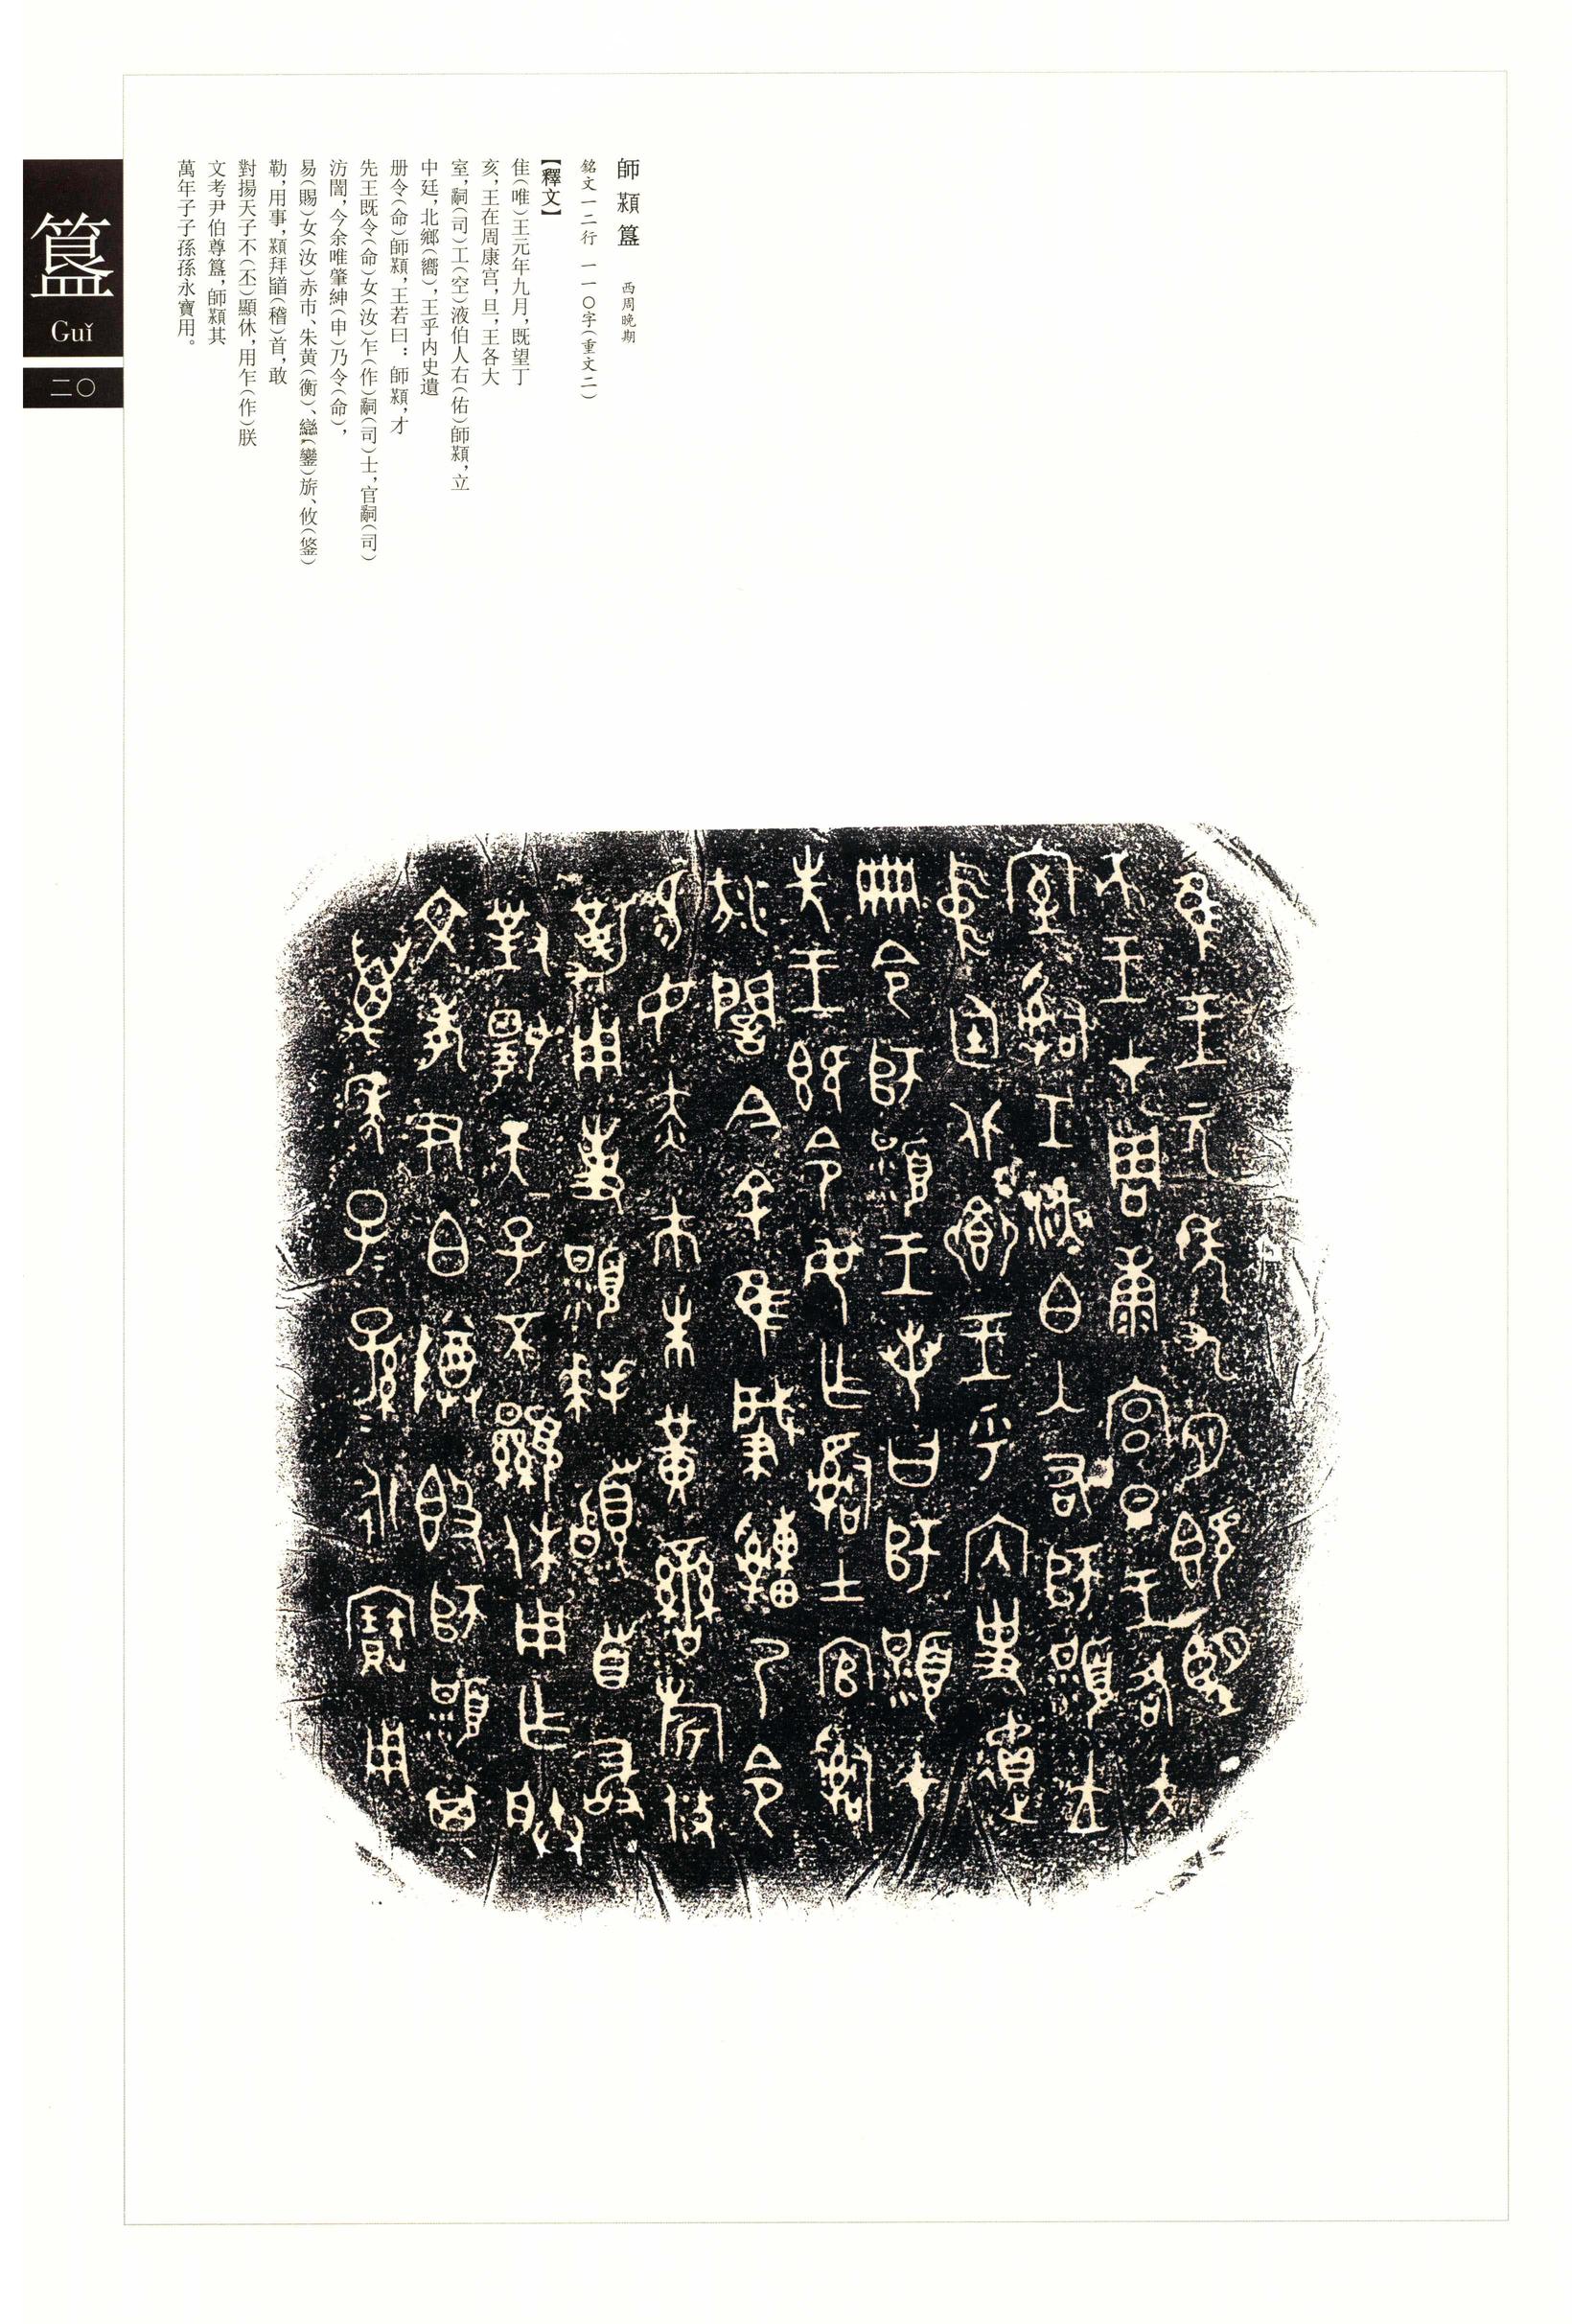 師𩒨簋 西周晚期
銘文一二行 一一〇字(重文二)
【釋文】
隹(唯)王元年九月,既望丁
亥,王在周康宫,旦,王各大
室,嗣(司)工(空)液伯人右(佑)師𩒨,立
中廷,北鄉(嚮),王乎内史遺
册令(命)師𩒨,王若曰:師𩒨,才
先王既令(命)女(汝)乍(作)嗣(司)士,官嗣(司)
汸誾,今余唯肇紳(申)乃令(命),
易(賜)女(汝)赤巿、朱黄(衡)、䜌(鑾)旂、攸(鋚)
勒,用事,𩒨拜𩒨(稽)首,敢
對揚天子不(丕)顯休,用乍(作)朕
文考尹伯尊簋,師𩒨其
萬年子子孫孫永寶用。
簋
Guǐ
二〇